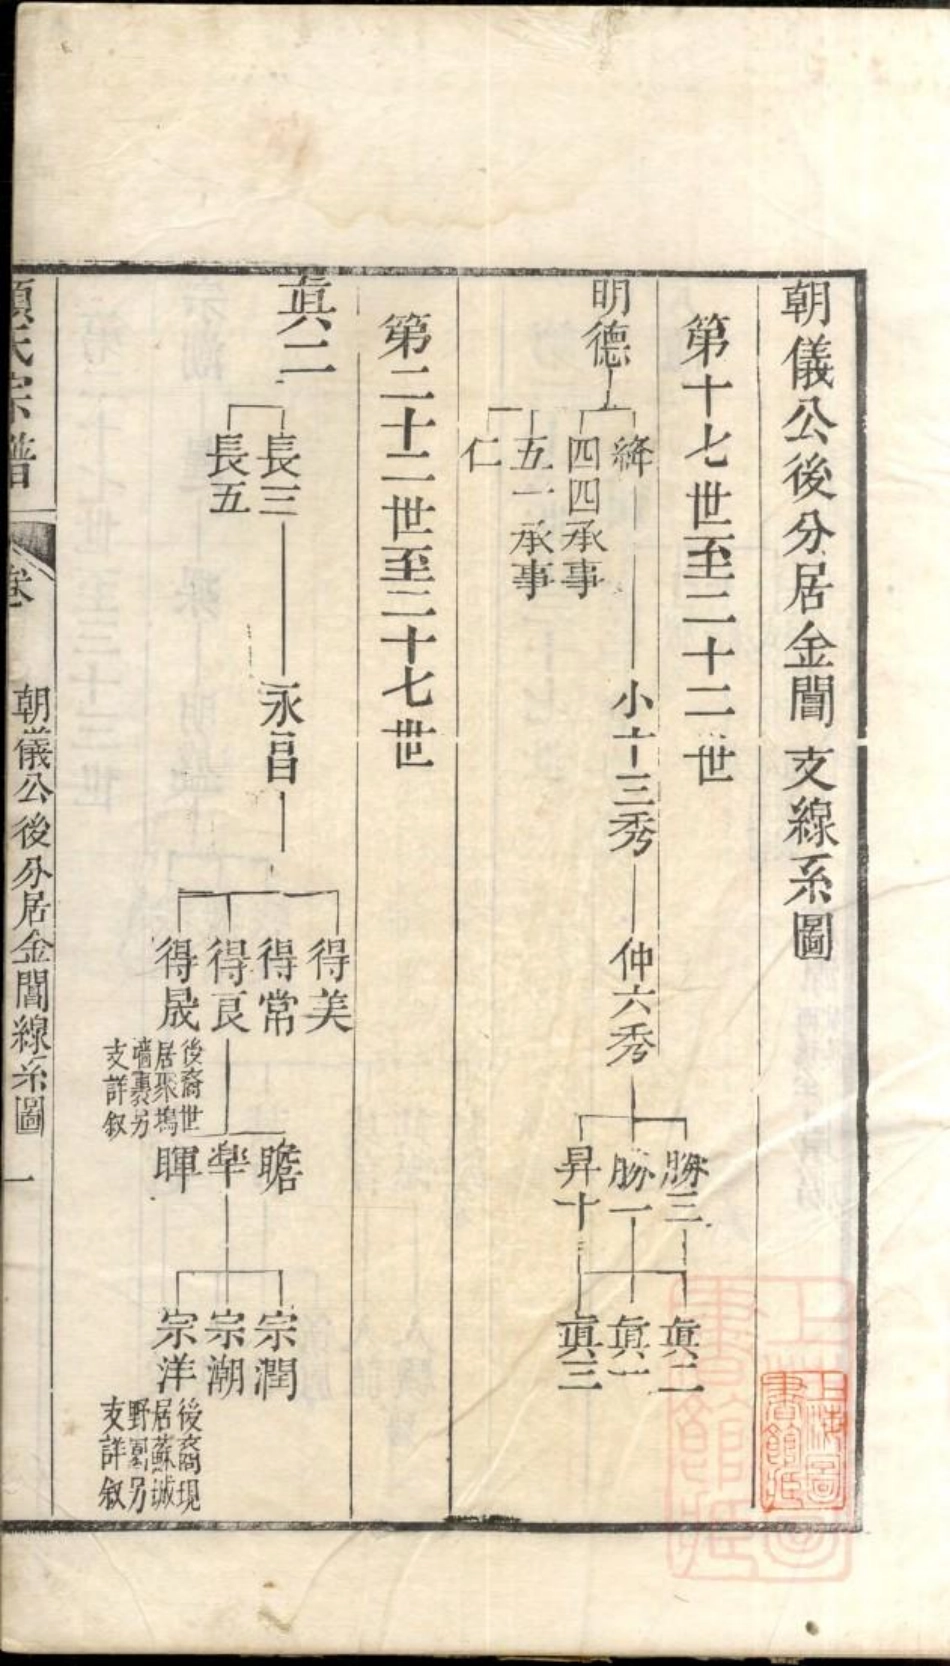 朝儀公後分居金閶支線系圖
第十七世至二十二世
明德
絳
四四承事
五一承事
仁
小十三秀
仲六秀
勝三
勝一
昇十
眞二
眞一
眞三
第二十二世至二十七世
眞二
長三
長五
永昌
得美
得常
得良
得晟
後裔世
居聚塢
牆裏另
支詳敘
瞻
犖
暉
宗潤
宗潮
宗洋
後裔現
居蘇城
野園另
支詳敘
氏宗譜
卷
朝儀公後分居金閶線系圖
一
上海圖書館藏